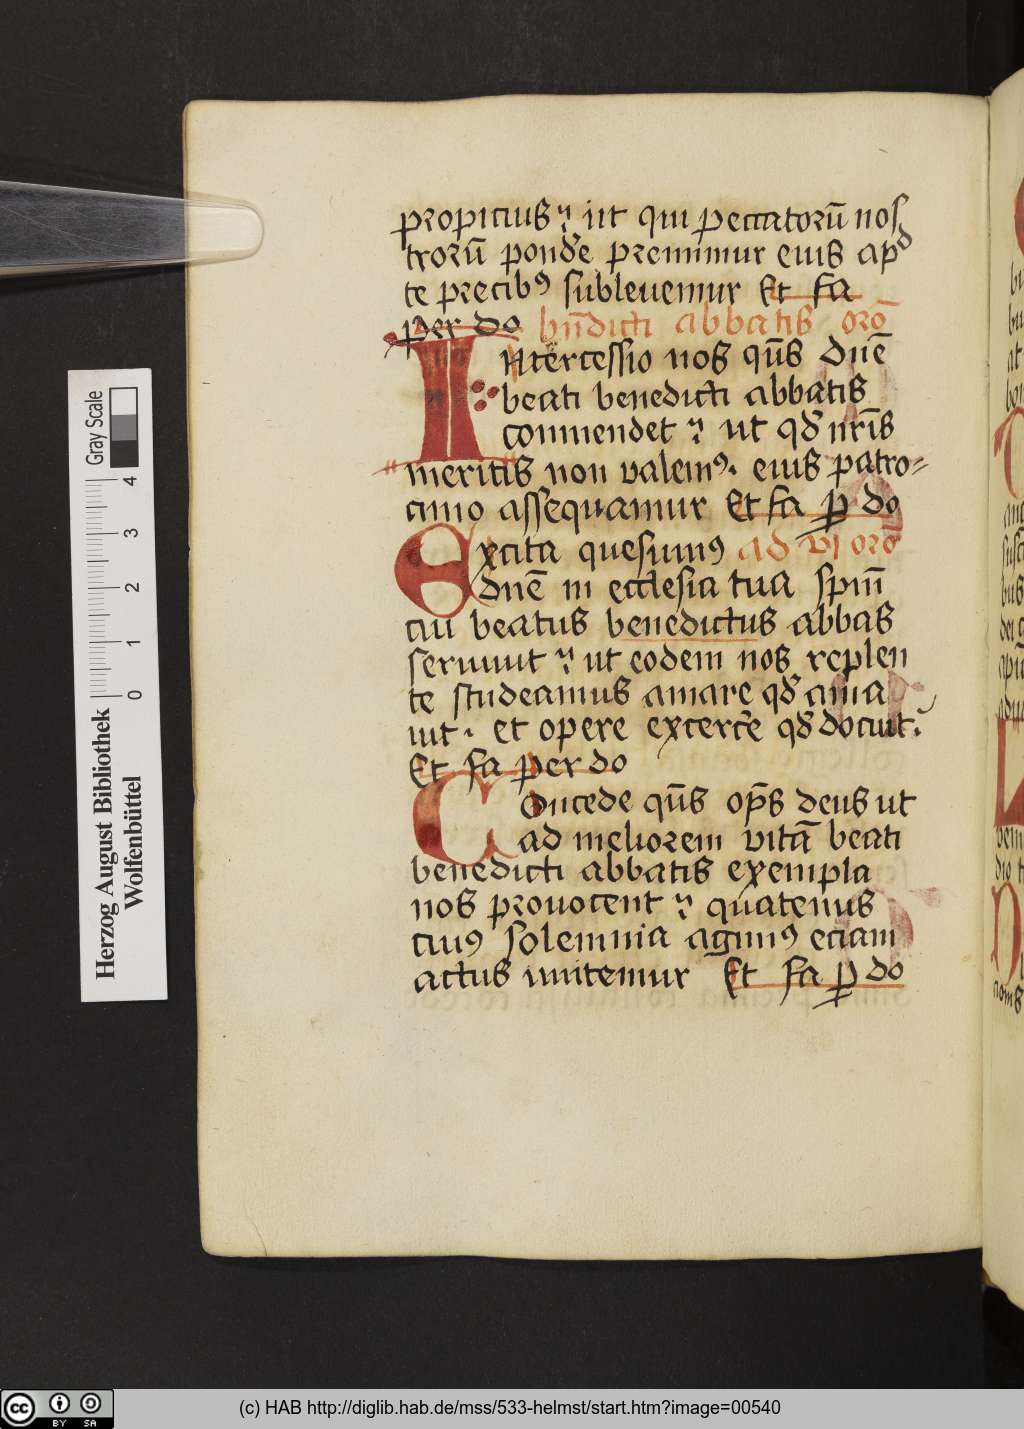 propicius ut qui peccatorū nos
trorū ponde᷑ premimur eius apᵈ
te precibꝰ subleuemur Et fa
per do bn̄dicti abbatis orō
Intercessio nos qūs dn̄e
beati benedicti abbatis
commendet ut qd̄ nr̄is
meritis non valemꝰ. eius patro=
cinio assequamur Et fa ꝑ do
Excita quesumꝰ ad vi orō
dn̄e in ecclesia tua spm̄
cui beatus benedictus abbas
seruiuit ut eodem nos replen
te studeamus amare qd̄ ama
uit. et opere excerce᷑ qd̄ docuit.
Et fa per do
Concede qūs op̄s deus ut
ad meliorem vitā beati
benedicti abbatis exempla
nos prouocent quatenus
cuiꝰ solemnia agimꝰ eciam
actus imitemur Et fa ꝑ do
Gray Scale
0 1 2 3 4
Herzog August Bibliothek
Wolfenbüttel
cc BY SA
(c) HAB http://diglib.hab.de/mss/533-helmst/start.htm?image=00540